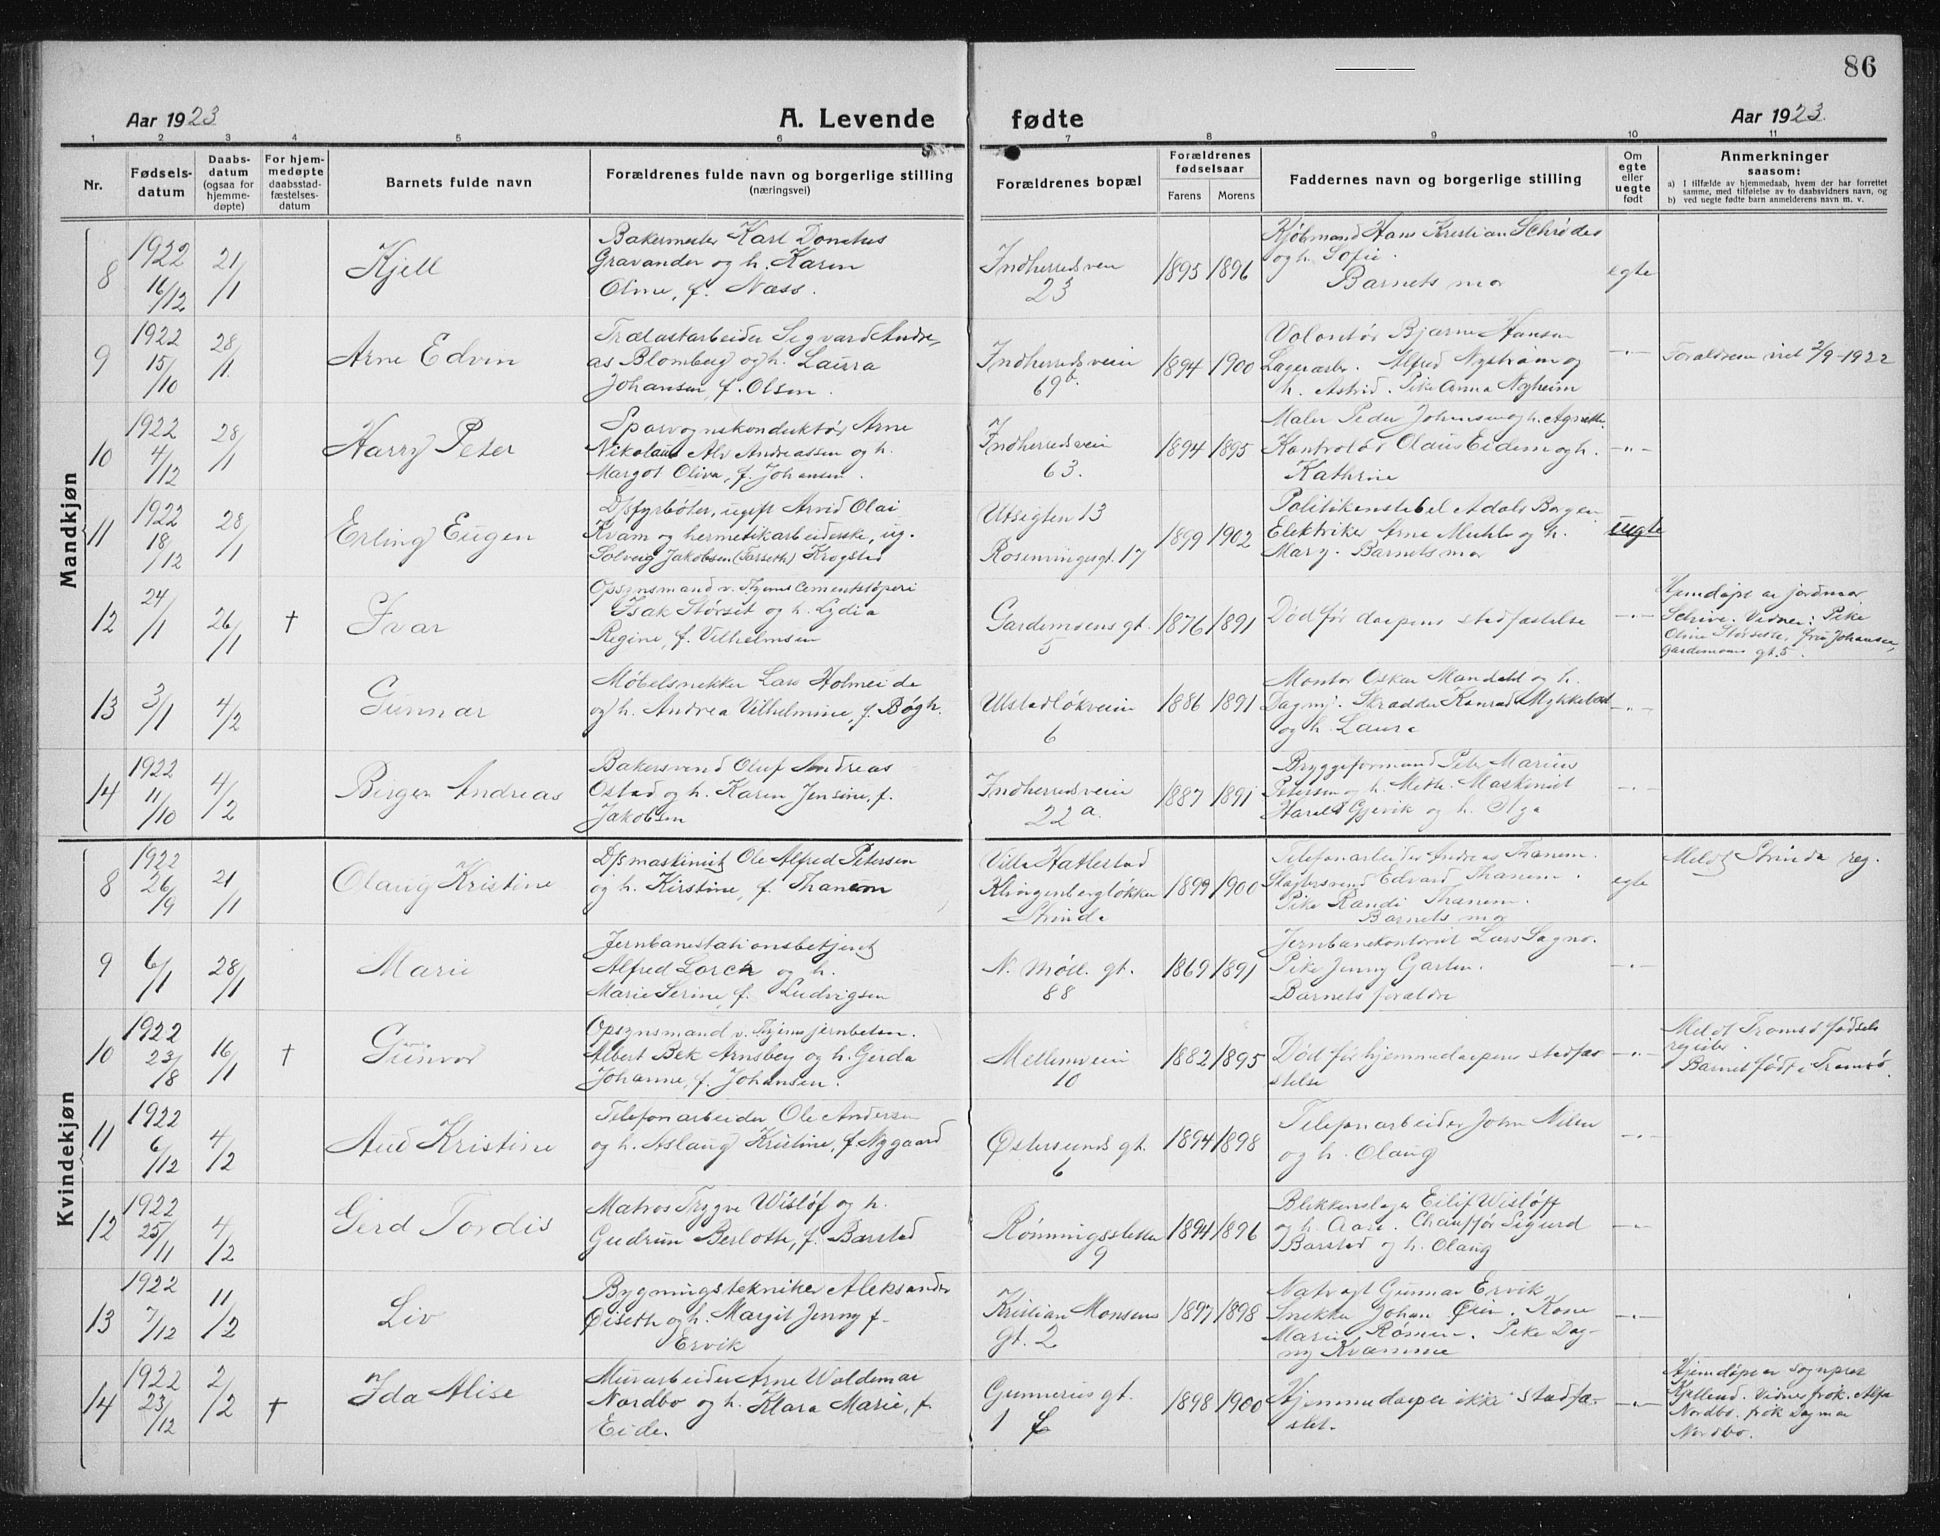 86
Aar 1923
A. Levende fødte
Aar 1923.
1 2 3 4 5 6 7 8 9 10 11
Nr.
Fødsels-
datum
Daabs-
datum
(ogsaa for
hjemme-
døpte)
For hjem-
medøpte
daabsstad-
fæstelses-
datum
Barnets fulde navn
Forældrenes fulde navn og borgerlige stilling
(næringsvei)
Forældrenes bopæl
Forældrenes
fødselsaar
Farens Morens
Faddernes navn og borgerlige stilling
Om
egte
eller
uegte
født
Anmerkninger
saasom:
a) I tilfælde av hjemmedaab, hvem der har forrettet
samme, med tilføielse av to daabsvidners navn, og
b) ved uegte fødte barn anmelderens navn m. v.
Mandkjøn
8
1922
16/12
21/1
Kjell
Bakermester Karl Donatus
Gravander og h. Karen
Oline, f. Næss.
Indherredsvein
23
1895 1896
Kjøbmand Hans Kristian Schrøder
og h. Sofie.
Barnets mor
egte
9
1922
15/10
28/1
Arne Edvin
Trælastarbeider Sigvard Andre-
as Blomberg og h. Laura
Johansen, f. Olsen.
Indherredsveien
69b.
1894 1900
Volontør Bjarne Hansen
Lagerarb. Alfred Nystrøm og
h. Astrid. Pike Anna Nyheim
-"-
Forældrene viet 2/9-1922
10
1922
4/12
28/1
Harry Peter
Sporvognskonduktør Arne
Nikolaus Alv Andreassen og h.
Margot Oliva, f. Johansen.
Indherredsveien
63.
1894 1895
Maler Peder Johnsen og h. Agnethe.
Kontrolør Olaus Eidem og h.
Kathrine
-"-
11
1922
18/12
28/1
Erling Eugen
D/sfyrbøter, ugift Arvid Olai
Kvam og hermetikarbeiderske, ug.
Solveig Jakobsen (Farseth) Krogstad
Utsigten 13
Rosenvingesgt. 17
1899 1902
Politikonstabel Adolv Borgen
Elektriker Arne Muhle og h.
Mary. Barnets mor
uegte
12
24/1
26/1
†
Ivar
Opsynsmand v. Thjems Cementstøperi
Isak Størset og h. Lydia
Regine, f. Vilhelmsen
Gardemoens gt.
5
1876 1891
Død før daapens stadfæstelse
-"-
Hjemdøpt av jordmor
Schive. Vidner: Pike
Oline Størseth, fru Johansen,
Gardemoens gt. 5.
13
3/1
4/2
Gunnar
Møbelsnekker Lars Holmeide
og h. Andrea Vilhelmine, f. Bøgh.
Ulstadløkveien
6
1886 1891
Montør Oskar Mandahl og h.
Dagny. Skrædder Konrad Myklebost
og h. Laura
-"-
14
1922
11/10
4/2
Birger Andreas
Bakersvend Oluf Andreas
Ostad og h. Karen Jensine, f.
Jakobsen
Indherredsveien
22 a.
1887 1891
Bryggeformand Peter Marius
Petersen og h. Meth. Maskinist
Harald Gjervik og h. Olga
-"-
Kvindekjøn
8
1922
26/9
21/1
Olaug Kristine
D/s maskinist Ole Alfred Petersen
og h. Kirstine, f. Thanem
Villa Hatlestad
Klingenbergløkken
Strinda
1899 1900
Telefonarbeider Andreas Tranem.
Slagtersvend Edvard Thanem.
Pike Randi Thanem.
Barnets mor
egte
Meldt Strinda reg.
9
6/1
28/1
Marie
Jernbanestationsbetjent
Alfred Lorch og h.
Marie Serine, f. Ludvigsen
N. Møll. gt.
88
1869 1891
Jernbanekontorist Lars Sagmo.
Pike Jenny Garten.
Barnets forældre
-"-
10
1922
23/8
16/1
†
Gunvor
Opsynsmand v. Thjems jernbeton.
Albert Bek Arnsberg og h. Gerda
Johanne, f. Johansen.
Mellemveien
10
1882 1895
Død før hjemmedaapens stadfæ-
stelse
-"-
Meldt Tromsø fødsels
register.
Barnet født i Tromsø.
11
1922
6/12
4/2
Aud Kristine
Telefonarbeider Ole Andersen
og h. Aslaug Kristine, f. Nygaard
Østersunds gt.
6
1894 1898
Telefonarbeider John Nilsen
og h. Olaug
-"-
12
1922
25/11
4/2
Gerd Tordis
Matros Trygve Wisløf og h.
Gudrun Berlotte, f. Barstad
Rønningsletten
9
1894 1896
Blikkenslager Eilif Wisløff
og h. Aase. Chauffør Sigurd
Barstad og h. Olaug
-"-
13
1922
7/12
11/2
Liv
Bygningstekniker Aleksander
Øiseth og h. Margit Jenny f.
Ervik
Kristian Monsens
gt. 2
1897 1898
Natvagt Gunnar Ervik
Snekker Johan Øien. Kone
Marie Rømen. Pike Dag-
ny Kvamme
-"-
14
1922
23/12
2/2
†
Ida Alise
Murarbeider Arne Waldemar
Nordbo og h. Klara Marie, f.
Eide.
Gunnerus gt.
1
1898 1900
Hjemmedaapen ikke stadfæ-
stet.
-"-
Hjemdøpt av sogneprest
Kjelland. Vidner frøk. Alfa
Nordbo. frøk Dagmar
Nordbo.